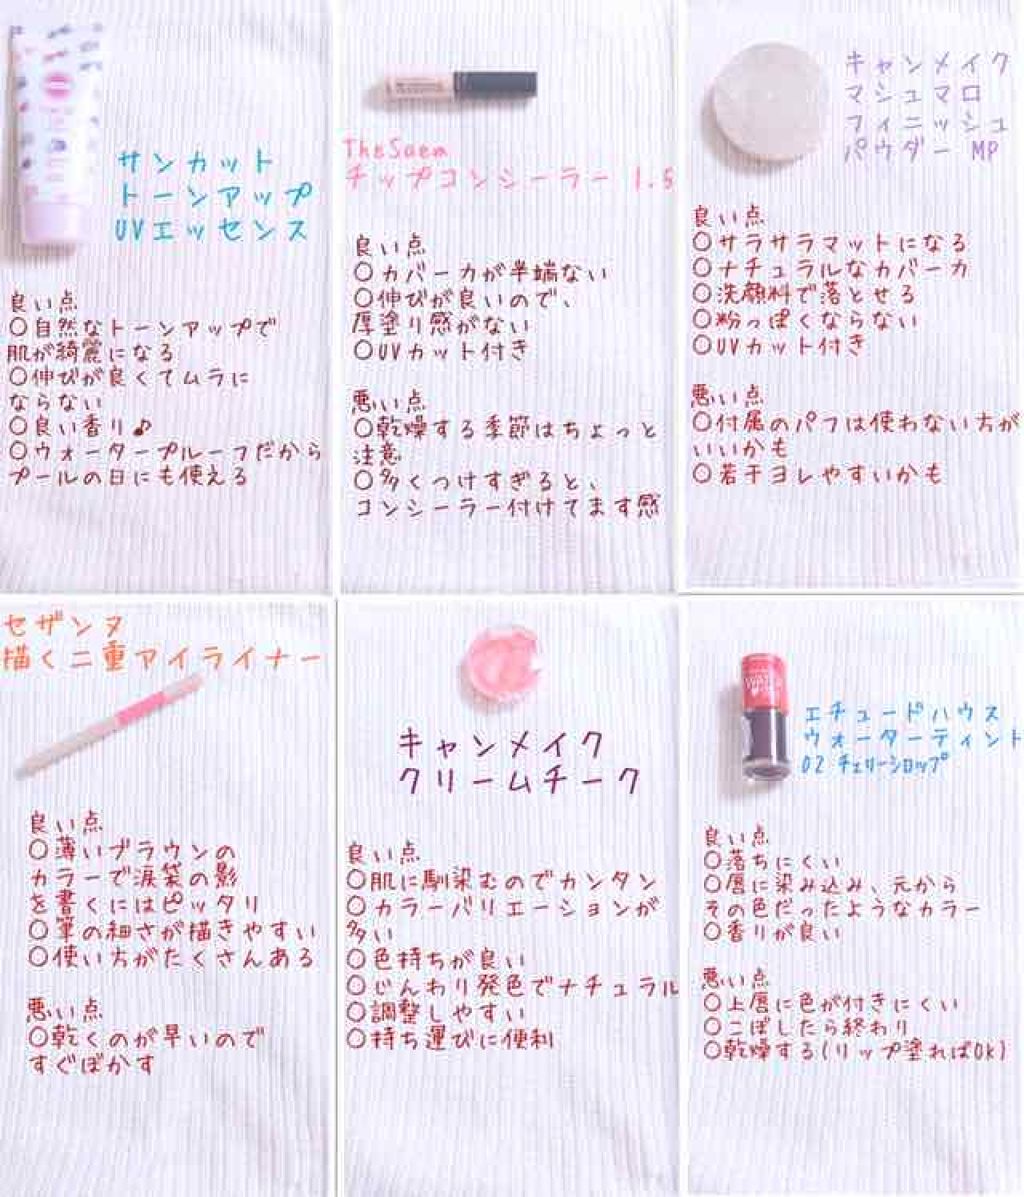 サンカット
トーンアップ
UVエッセンス
良い点
○自然なトーンアップで
肌が綺麗になる
○伸びが良くてムラに
ならない
○良い香り♪
○ウォータープルーフだから
プールの日にも使える
TheSaem
チップコンシーラー 1.5
良い点
○カバー力が半端ない
○伸びが良いので、
厚塗り感がない
○UVカット付き
悪い点
○乾燥する季節はちょっと
注意
○多くつけすぎると、
コンシーラー付けてます感
キャンメイク
マシュマロ
フィニッシュ
パウダー MP
良い点
○サラサラマットになる
○ナチュラルなカバー力
○洗顔料で落とせる
○粉っぽくならない
○UVカット付き
悪い点
○付属のパフは使わない方が
いいかも
○若干ヨレやすいかも
セザンヌ
描く二重アイライナー
良い点
○薄いブラウンの
カラーで涙袋の影
を書くにはピッタリ
○筆の細さが描きやすい
○使い方がたくさんある
悪い点
○乾くのが早いので
すぐぼかす
キャンメイク
クリームチーク
良い点
○肌に馴染むのでカンタン
○カラーバリエーションが
多い
○色持ちが良い
○じんわり発色でナチュラル
○調整しやすい
○持ち運びに便利
エチュードハウス
ウォーターティント
02 チェリーシロップ
良い点
○落ちにくい
○唇に染み込み、元から
その色だったようなカラー
○香りが良い
悪い点
○上唇に色が付きにくい
○こぼしたら終わり
○乾燥する(リップ塗ればOK)